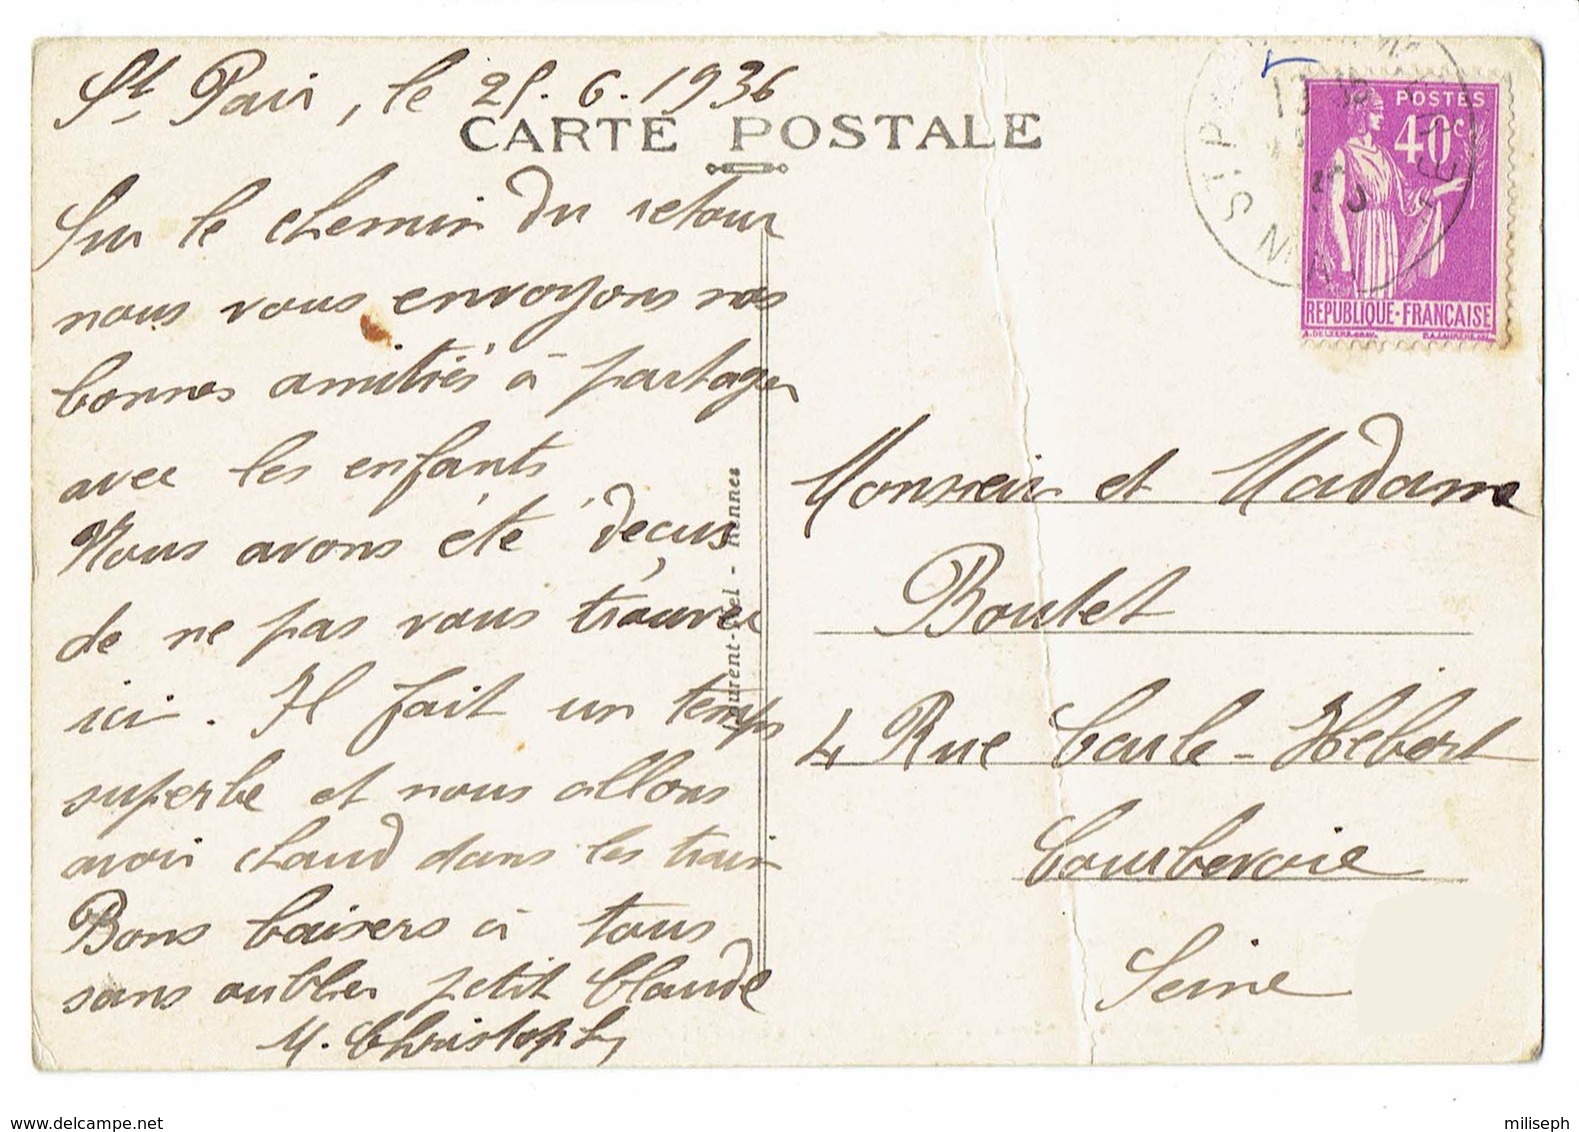 St Pair, le 25.6.1936
CARTE POSTALE
Sur le chemin du retour
nous vous envoyons nos
bonnes amitiés à partager
avec les enfants
Nous avons été déçus
de ne pas vous trouver
ici. Il fait un temps
superbe et nous allons
avoir chaud dans les train
Bons baisers à tous
sans oublier petit Claude
M. Christophe
Laurent-Nel - Rennes
POSTES
40c
REPUBLIQUE-FRANÇAISE
Monsieur et Madame
Boulet
4 Rue Carle-Hébert
Courbevoie
Seine
www.delcampe.net
miliseph